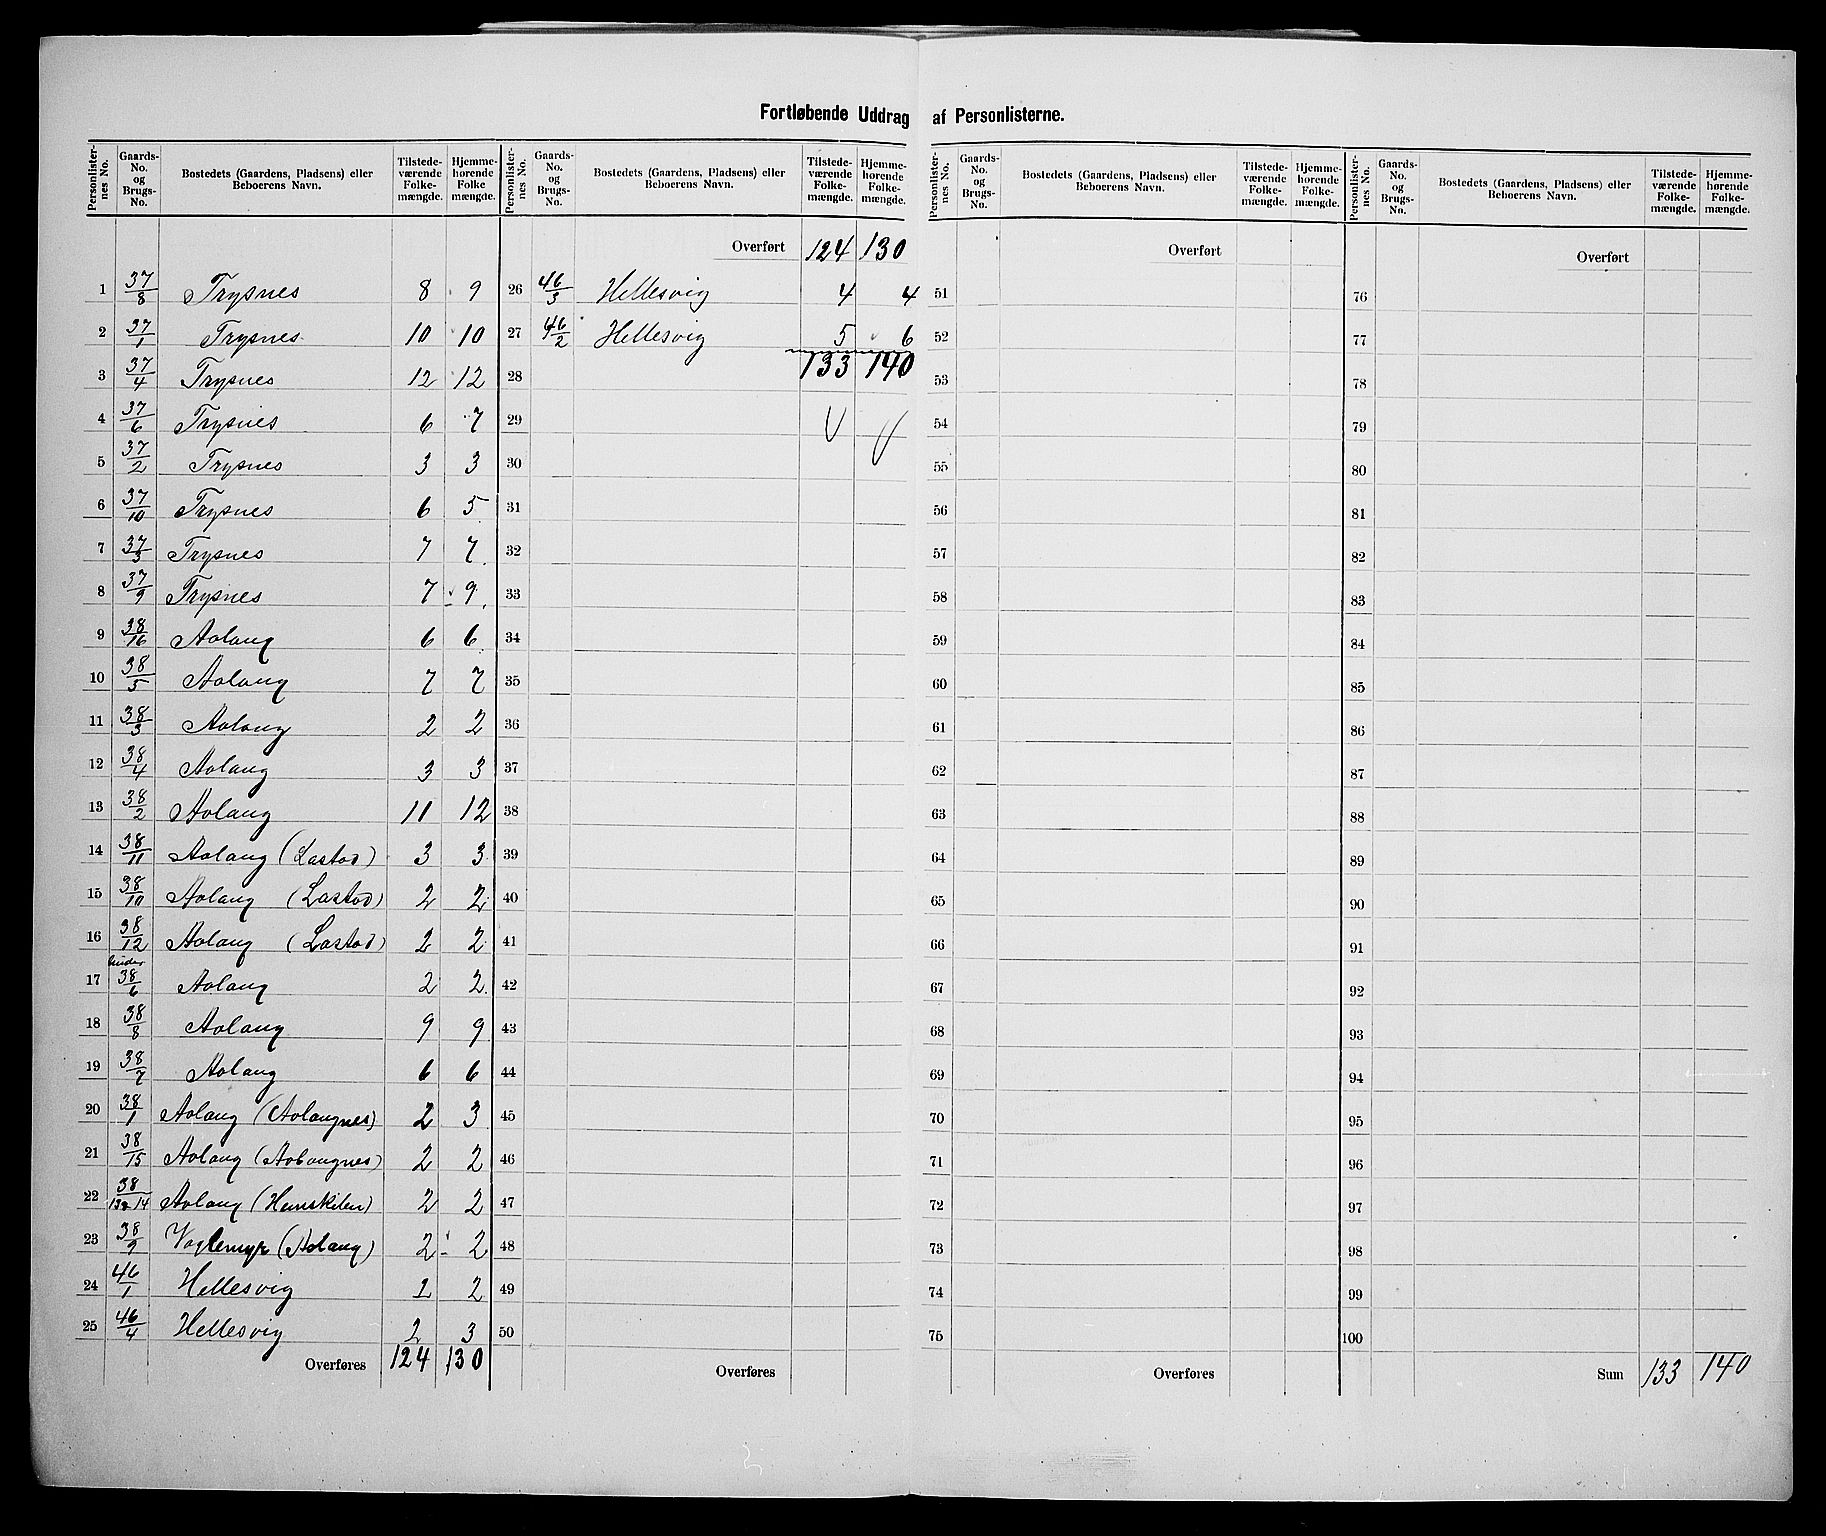 Fortløbende Uddrag af Personlisterne.
Personlisternes No. | Gaards-No. og Brugs-No. | Bostedets (Gaardens, Pladsens) eller Beboerens Navn. | Tilstedeværende Folkemængde. | Hjemmehørende Folkemængde.
1 37/8 Trysnes 8 9
2 37/1 Trysnes 10 10
3 37/4 Trysnes 12 12
4 37/6 Trysnes 6 7
5 37/2 Trysnes 3 3
6 37/10 Trysnes 6 5
7 37/3 Trysnes 7 7
8 37/9 Trysnes 7 9
9 38/16 Aolang 6 6
10 38/5 Aolang 7 7
11 38/3 Aolang 2 2
12 38/4 Aolang 3 3
13 38/2 Aolang 11 12
14 38/11 Aolang (Lastad) 3 3
15 38/10 Aolang (Lastad) 2 2
16 38/12 Aolang (Lastad) 2 2
17 under 38/6 Aolang 2 2
18 38/8 Aolang 9 9
19 38/7 Aolang 6 6
20 38/1 Aolang (Aolangnes) 2 3
21 38/15 Aolang (Aolangnes) 2 2
22 38/13 14 Aolang (Homskilen) 2 2
23 38/9 Voglemyr (Aolang) 2 2
24 46/1 Hellesvig 1 2
25 46/4 Hellesvig 2 3
Overføres 124 130
Personlisternes No. | Gaards-No. og Brugs-No. | Bostedets (Gaardens, Pladsens) eller Beboerens Navn. | Tilstedeværende Folkemængde. | Hjemmehørende Folkemængde.
Overført 124 130
26 46/3 Hellesvig 4 4
27 46/2 Hellesvig 5 6
28 133 140
29
30
31
32
33
34
35
36
37
38
39
40
41
42
43
44
45
46
47
48
49
50
Overføres
Personlisternes No. | Gaards-No. og Brugs-No. | Bostedets (Gaardens, Pladsens) eller Beboerens Navn. | Tilstedeværende Folkemængde. | Hjemmehørende Folkemængde.
Overført
51
52
53
54
55
56
57
58
59
60
61
62
63
64
65
66
67
68
69
70
71
72
73
74
75
Overføres
Personlisternes No. | Gaards-No. og Brugs-No. | Bostedets (Gaardens, Pladsens) eller Beboerens Navn. | Tilstedeværende Folkemængde. | Hjemmehørende Folkemængde.
Overført
76
77
78
79
80
81
82
83
84
85
86
87
88
89
90
91
92
93
94
95
96
97
98
99
100
Sum 133 140